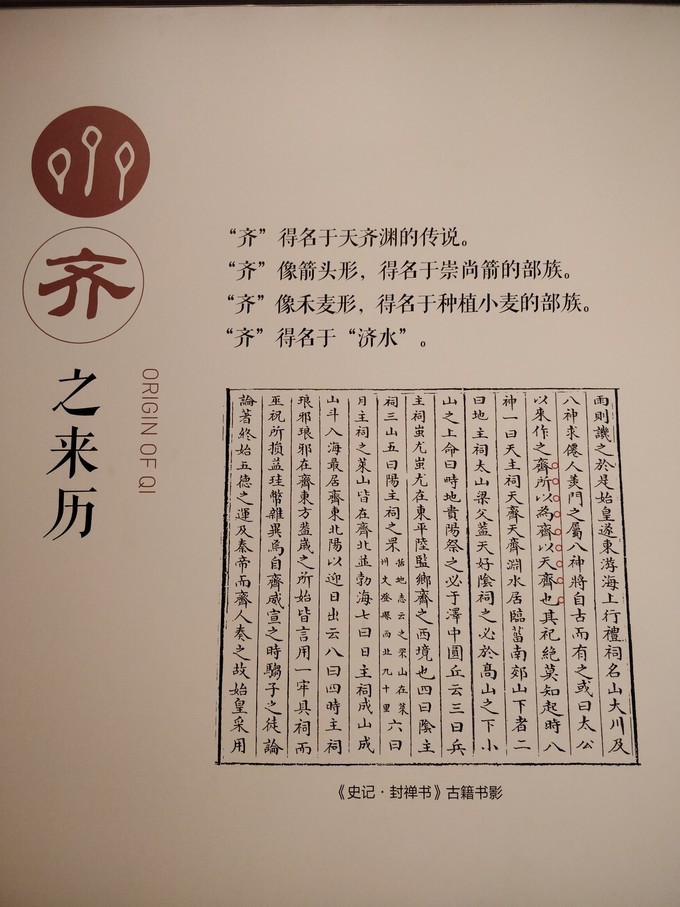 齐
之来历
ORIGIN OF QI
“齐”得名于天齐渊的传说。
“齐”像箭头形，得名于崇尚箭的部族。
“齐”像禾麦形，得名于种植小麦的部族。
“齐”得名于“济水”。
雨則譏之於是始皇遂東游海上行禮祠名山大川及
八神求僊人羨門之屬八神將自古而有之或曰太公
以來作之齊所以為齊以天齊也其祀絶莫知起時八
神一曰天主祠天齊天齊淵水居臨菑南郊山下者二
曰地主祠太山梁父蓋天好陰祠之必於髙山之下小
山之上命曰畤地貴陽祭之必于澤中圜丘云三曰兵
主祠蚩尤蚩尤在東平陸監鄉齊之西境也四曰陰主
祠三山五曰陽主祠之罘 六曰
月主祠之萊山皆在齊北並勃海七曰日主祠成山成
山斗入海最居齊東北陽以迎日出云八曰四時主祠
琅邪琅邪在齊東方蓋歲之所始皆言用一牢具祠而
巫祝所損益珪幣雜異焉自齊威宣之時騶子之徒論
論著終始五德之運及秦帝而齊人奏之故始皇采用
《史记·封禅书》古籍书影